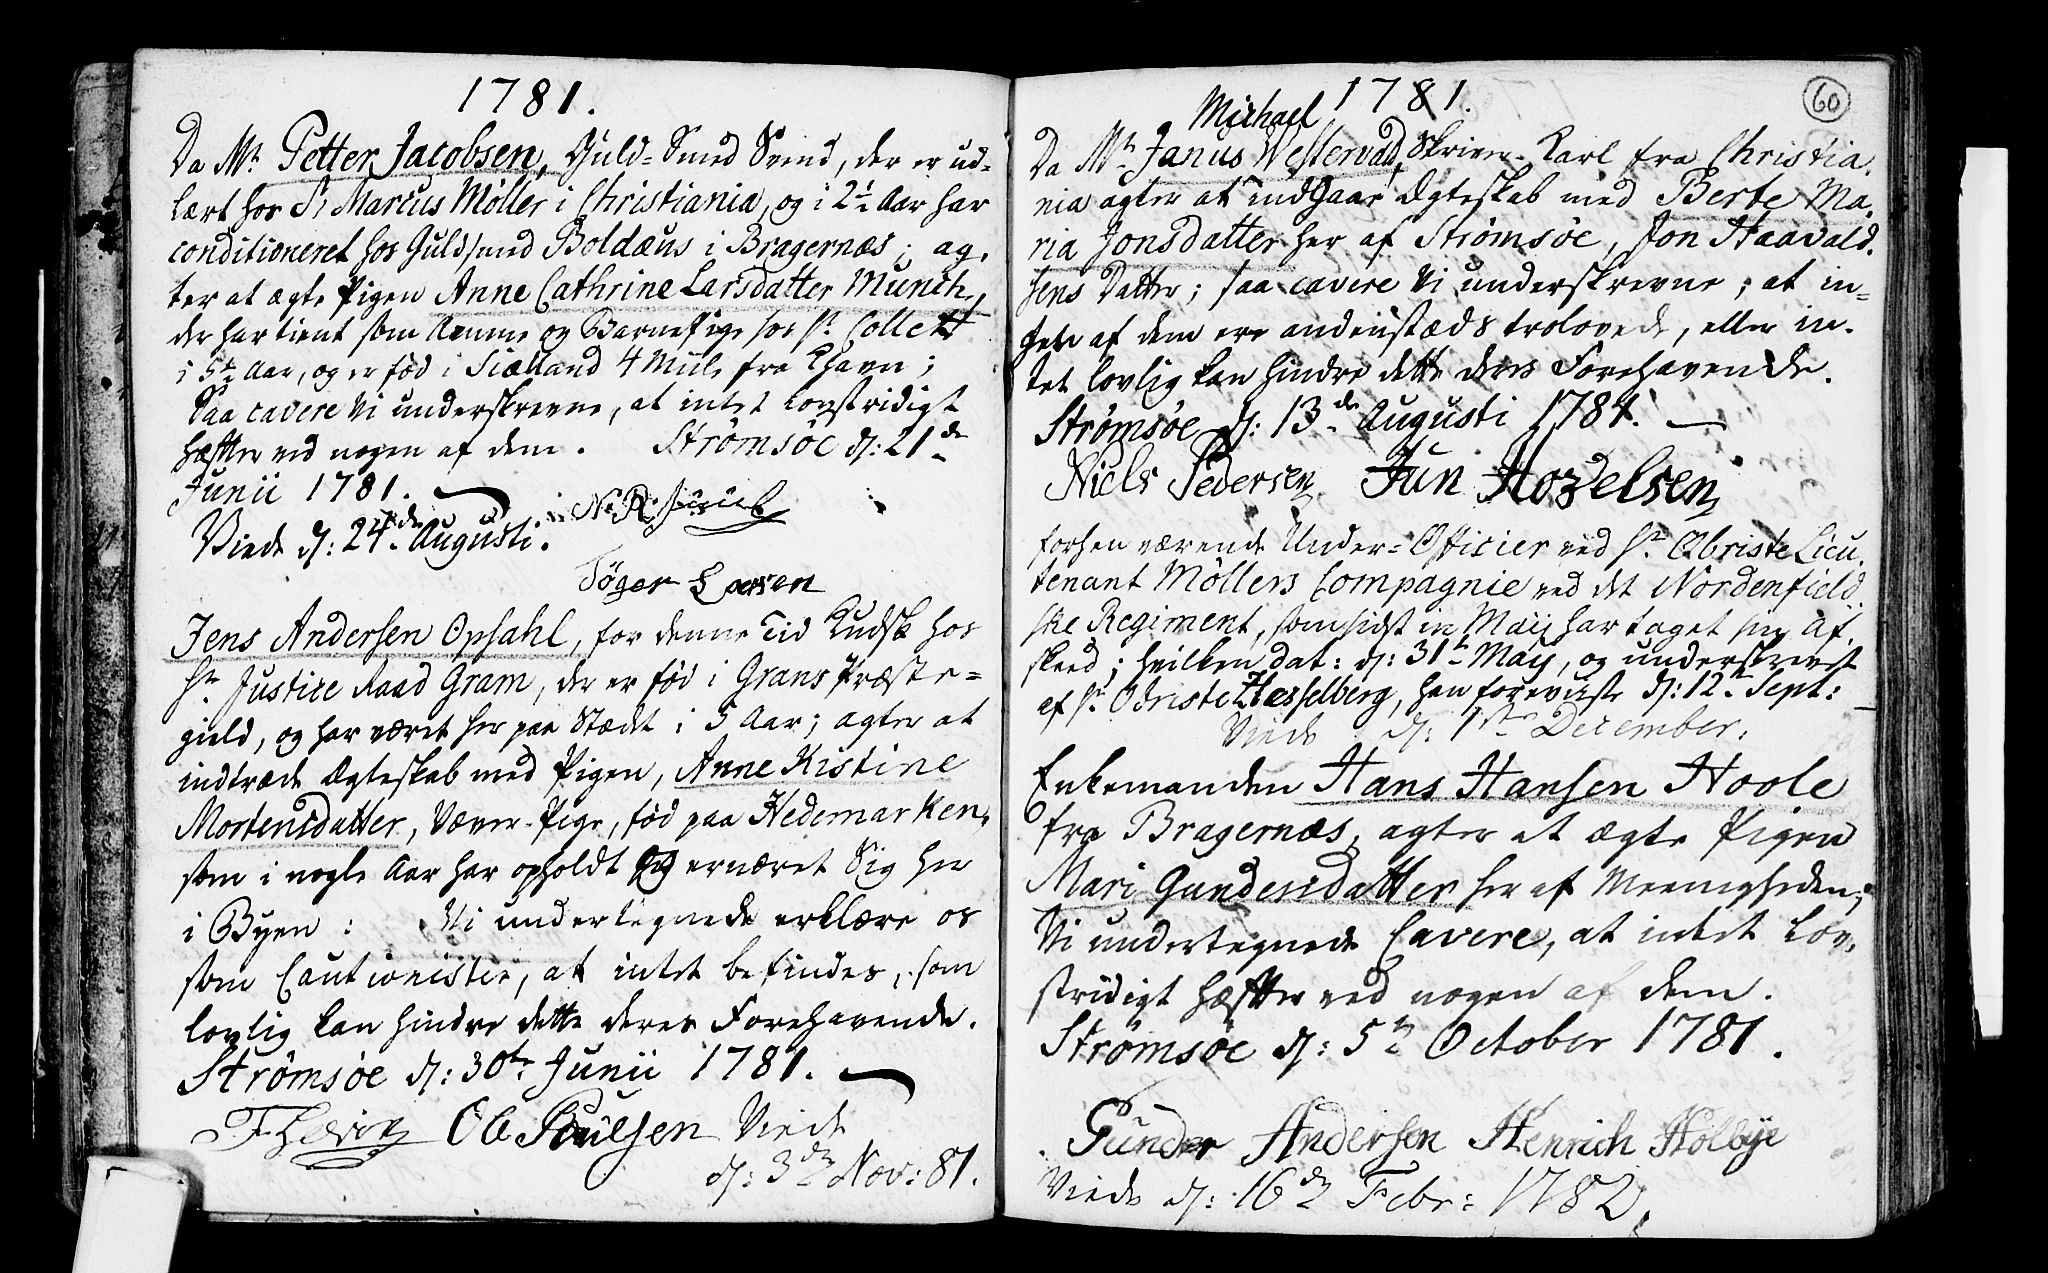 1781.
Da Mr. Petter Jacobsen, Guld-Smed Svend, der er ud-
lært hos Sr Marcus Möller i Christiania, og i 2½ Aar har
conditioneret hos Guldsmed Boldæus i Bragernæs; ag-
ter at ægte Pigen Anne Cathrine Larsdatter Munch,
der har tient som Amme og Barnepige hos Hr. Collett
i 5½ Aar, og er fød i Siælland 4 Miile fra Khavn;
Saa cavere Vi underskrevne, at intet lovstridigt
hæfter ved nogen af dem. Strømsøe d: 21de
Junii 1781.
Viede d: 24de Augusti.
Töger Larsen
Jens Andersen Opsahl, for denne Tid Kudsk hos
Hr. Justice Raad Gram, der er fød i Grans Præste-
gield, og har været her paa Stædet i 5 Aar; agter at
indtræde Ægteskab med Pigen, Anne Kistine
Mortensdatter, Væver-Pige, fød paa Hedemarken,
som i nogle Aar har opholdt og ernæret Sig her
i Byen: Vi undertegnede erklære os
som Cautionister, at intet befindes, som
lovlig kan hindre dette deres Forehavende.
Strømsøe d: 30te Junii 1781.
Ole Poulsen Viede
d: 3de Nov: 81.
60
1781.
Michael
Da Mr. Janus Westervald, Skriver-Karl fra Christia-
nia agter at indgaae Ægteskab med Berte Ma-
ria Jonsdatter her af Strømsøe, Jon Haavald-
sens Datter; saa cavere Vi underskrevne, at in-
gen af dem ere andenstæds trolovede, eller in-
tet lovlig kan hindre dette deres Forehavende.
Strømsøe d: 13de Augusti 1781.
Niels Pedersen Jun Hovelsen
forhen værende Under-Officier ved Hr. Obriste Lieu-
tenant Möllers Compagnie ved det Nordenfield-
ske Regiment, som sidst in Maij har taget sin Af-
skeed; hvilken dat: d: 31te Maij, og underskrevet
af Hr. Obriste Hesselberg, han foreviiste d: 12te Sept:
Viede d: 1ste December.
Enkemanden Hans Hansen Hoole
fra Bragernæs, agter at ægte Pigen
Mari Gundersdatter her af Meenigheden;
Vi undertegnede Cavere, at intet lov-
stridigt hæfter ved nogen af dem.
Strømsøe d: 5te October 1781.
Gunder Andersen Henrich Holbye
Viede d: 16de Febr: 1782.